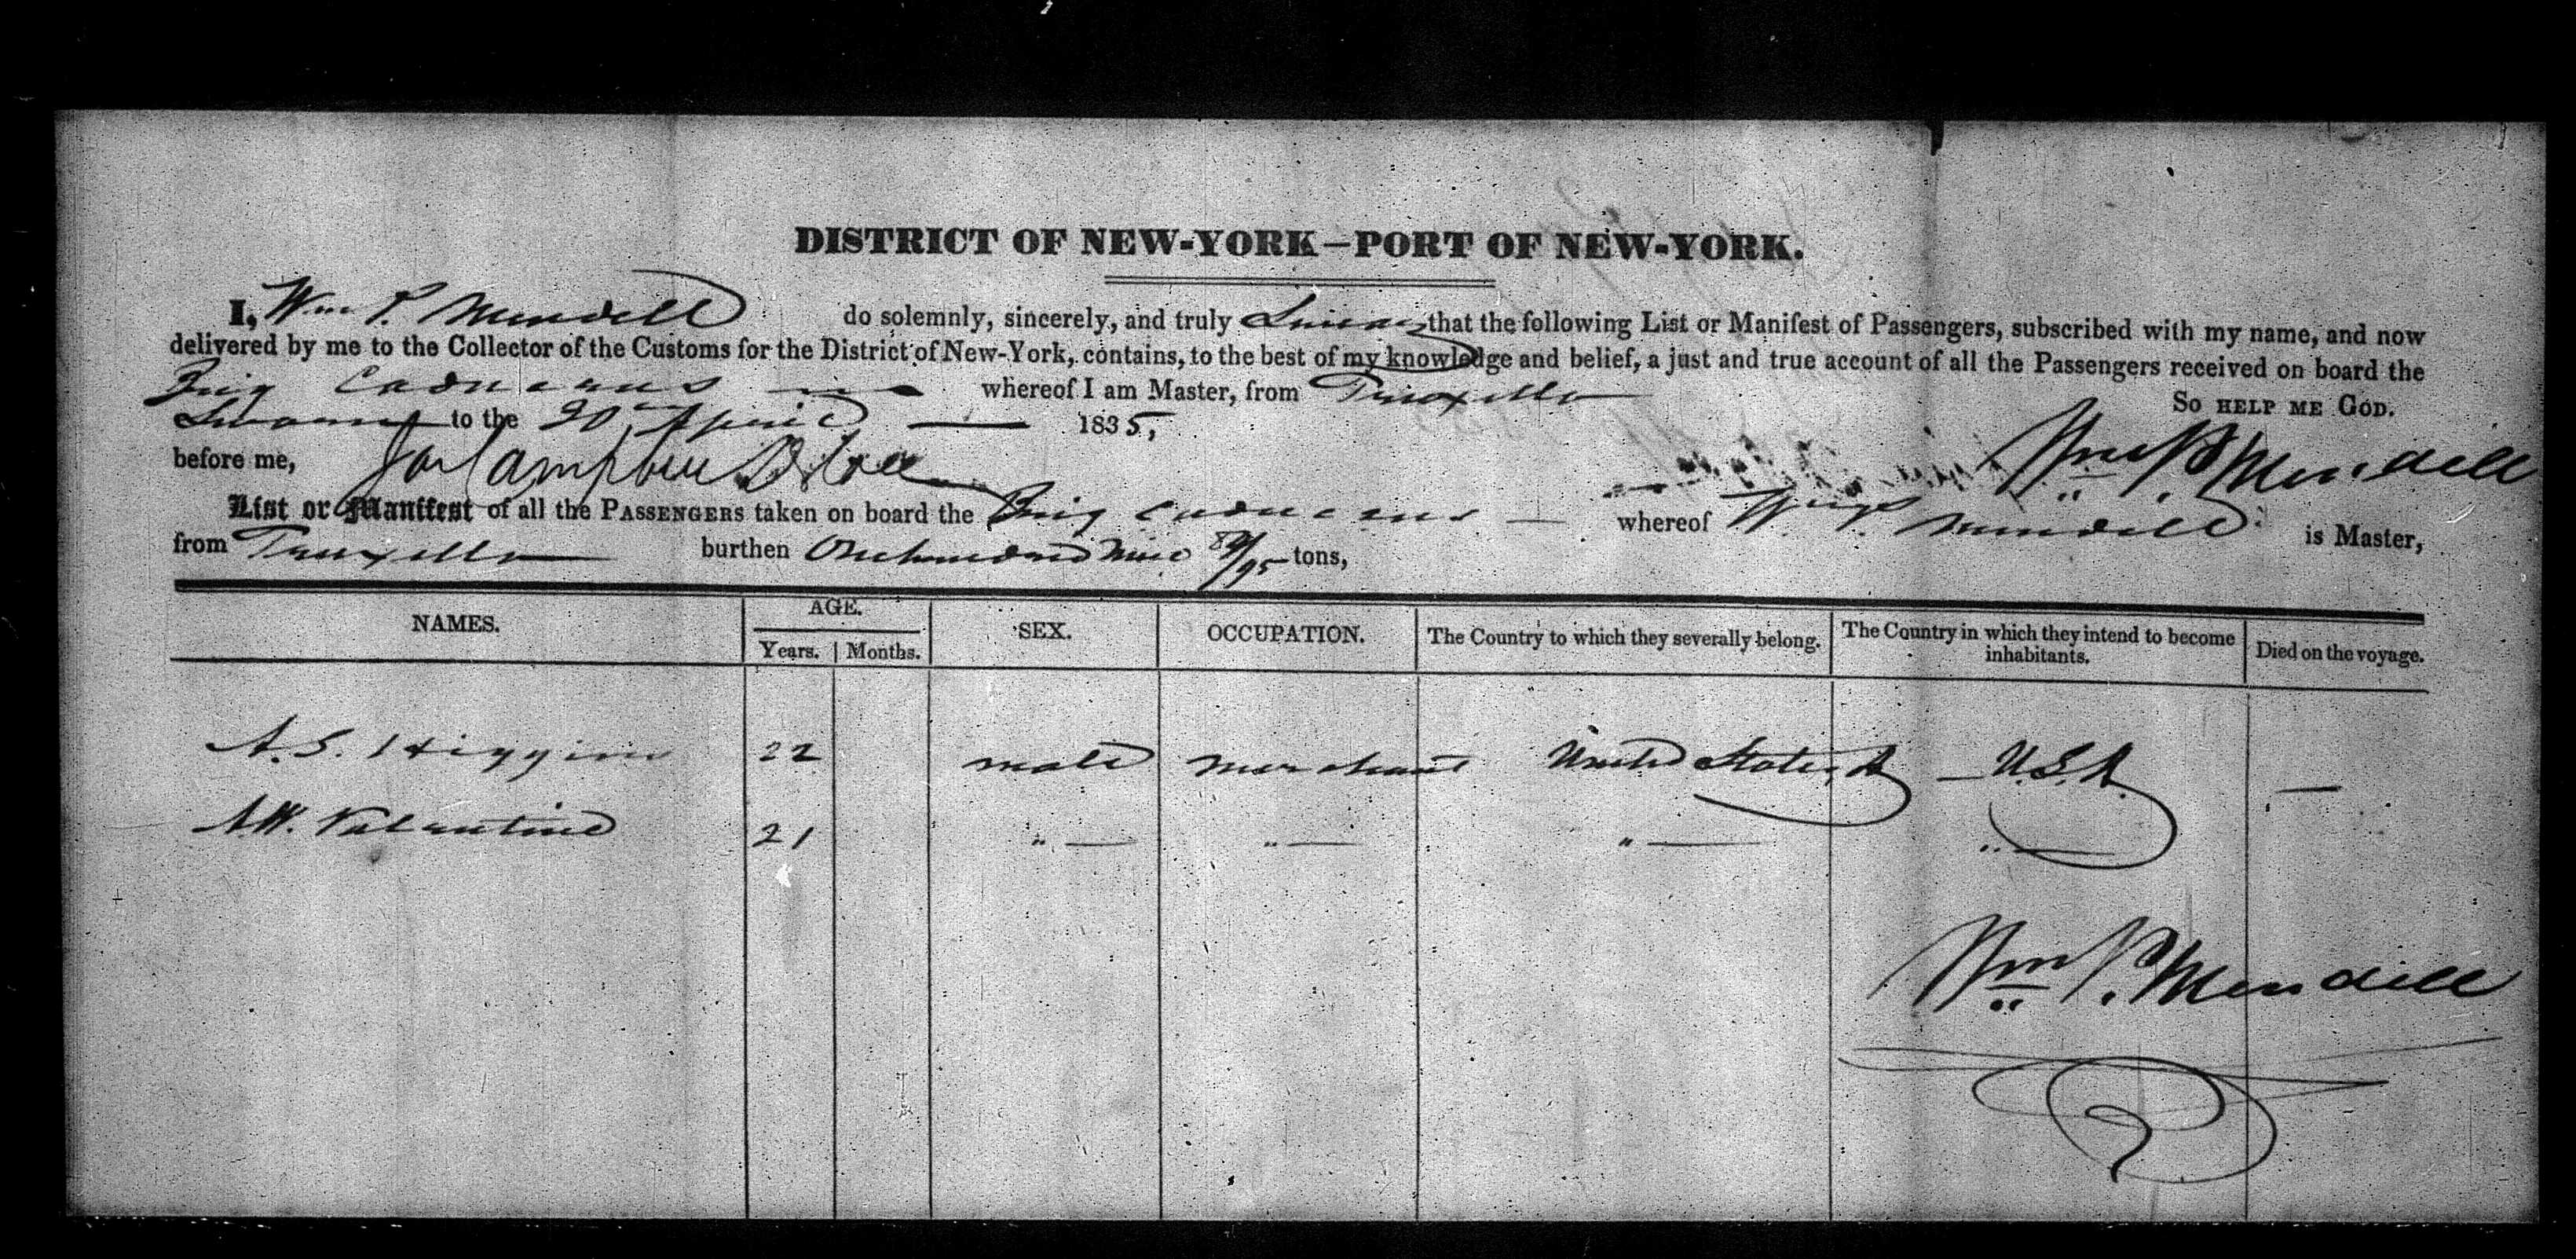 DISTRICT OF NEW-YORK—PORT OF NEW-YORK.
I, Wm P. Mendell do solemnly, sincerely, and truly Swear that the following List or Manifest of Passengers, subscribed with my name, and now
delivered by me to the Collector of the Customs for the District of New-York, contains, to the best of my knowledge and belief, a just and true account of all the Passengers received on board the
Brig whereof I am Master, from Truxillo
So HELP ME GOD.
Sworn to the 20 April 1835,
before me, Wm P. Mendell
List or Manifest of all the PASSENGERS taken on board the Brig whereof Wm P. Mendell is Master,
from Truxillo burthen One hundred nine /95 tons,
NAMES. AGE. SEX. OCCUPATION. The Country to which they severally belong. The Country in which they intend to become inhabitants. Died on the voyage.
Years. Months.
A. S. Higgins 22 male merchant United States A — U.S.A. —
A W. Valentine 21 " — " — " — " —
Wm P. Mendell